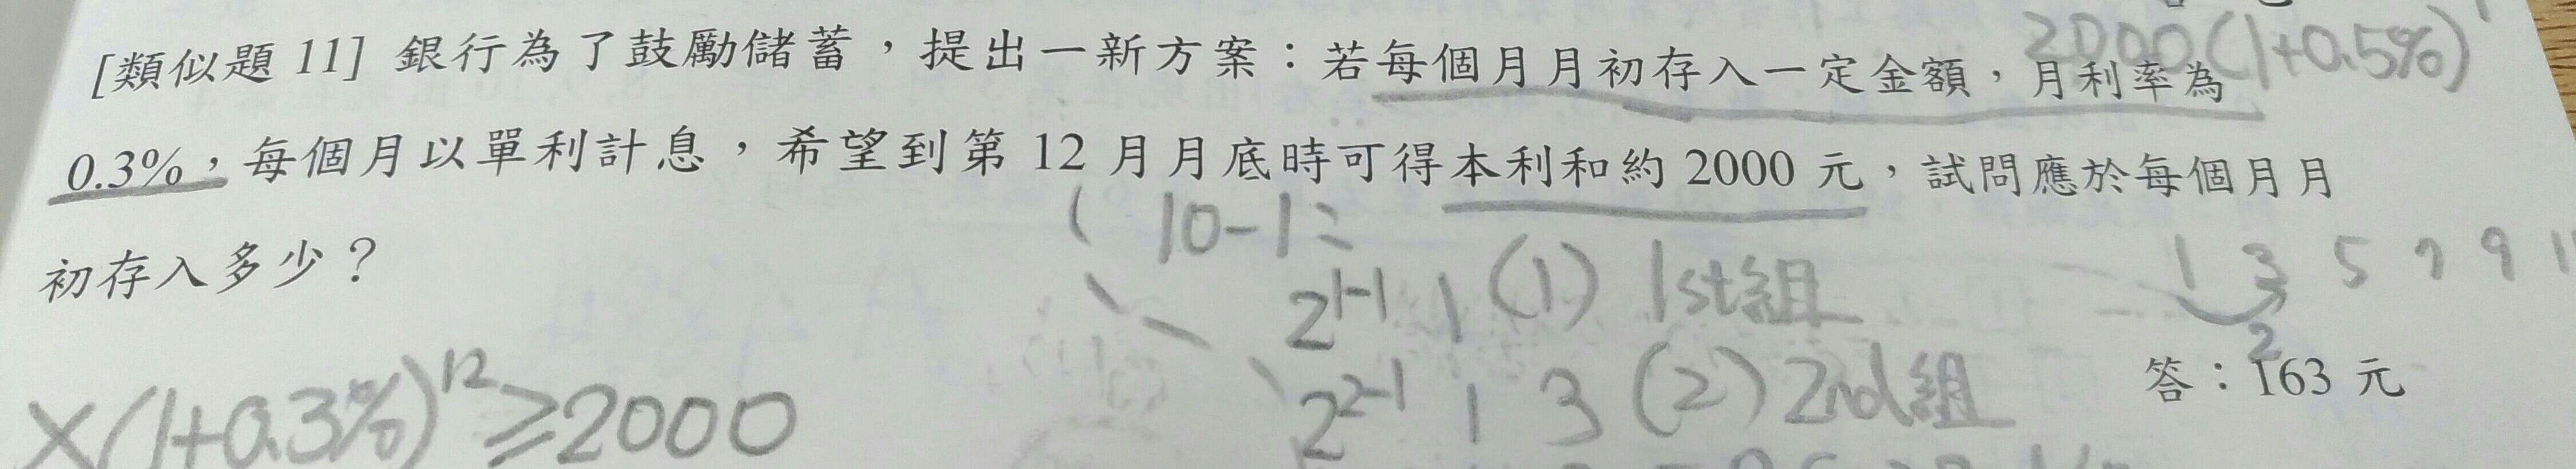 2000(1+0.5%)
[類似題 11] 銀行為了鼓勵儲蓄，提出一新方案：若每個月月初存入一定金額，月利率為
0.3%，每個月以單利計息，希望到第 12 月月底時可得本利和約 2000 元，試問應於每個月月
初存入多少？
10-1=
1 3 5 7 9 11
2^1-1 1 (1) 1st組
2
答：163 元
x(1+0.3%)^12≥2000
2^2-1 1 3 (2) 2nd組